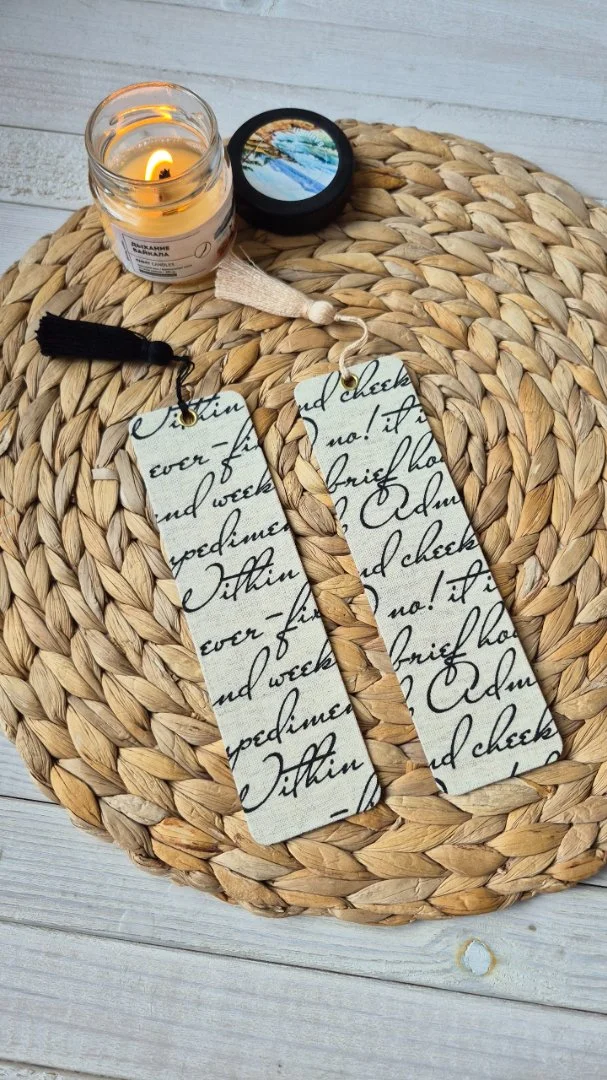 ДЫХАНИЕ
БАЙКАЛА
Within
ever-fi
nd week
mpedimen
Within
ever-fix
nd week
mpedimen
Within
nd cheek
no! it i
brief hou
Adm
nd cheek
no! it i
brief hou
Adm
nd cheek